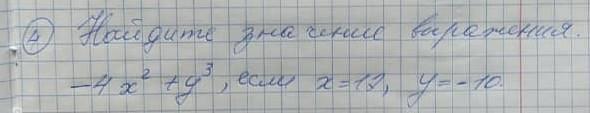 4 Найдите значение выражения.
-4x² + y³, если x=12, y=-10.